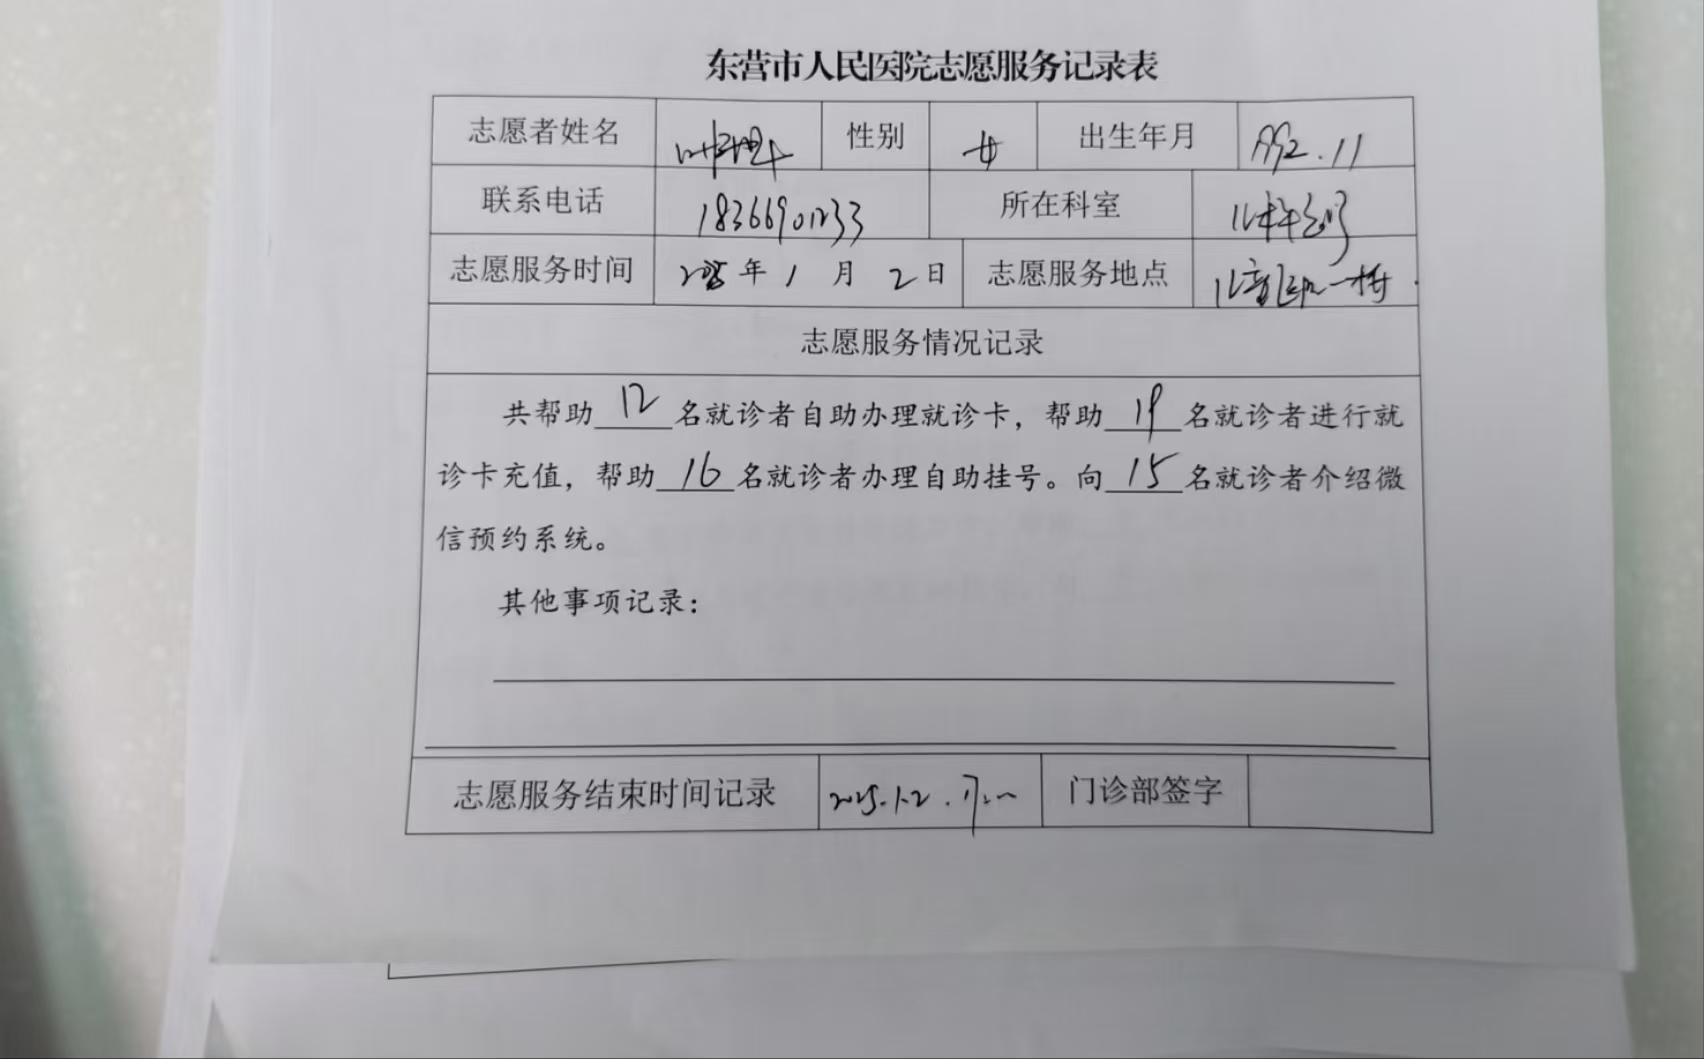 东营市人民医院志愿服务记录表
志愿者姓名 性别 女 出生年月 1992.11
联系电话 18366901233 所在科室
志愿服务时间 2025年1月2日 志愿服务地点
志愿服务情况记录
共帮助12名就诊者自助办理就诊卡，帮助19名就诊者进行就
诊卡充值，帮助16名就诊者办理自助挂号。向15名就诊者介绍微
信预约系统。
其他事项记录：
志愿服务结束时间记录 2025.1.2. 门诊部签字